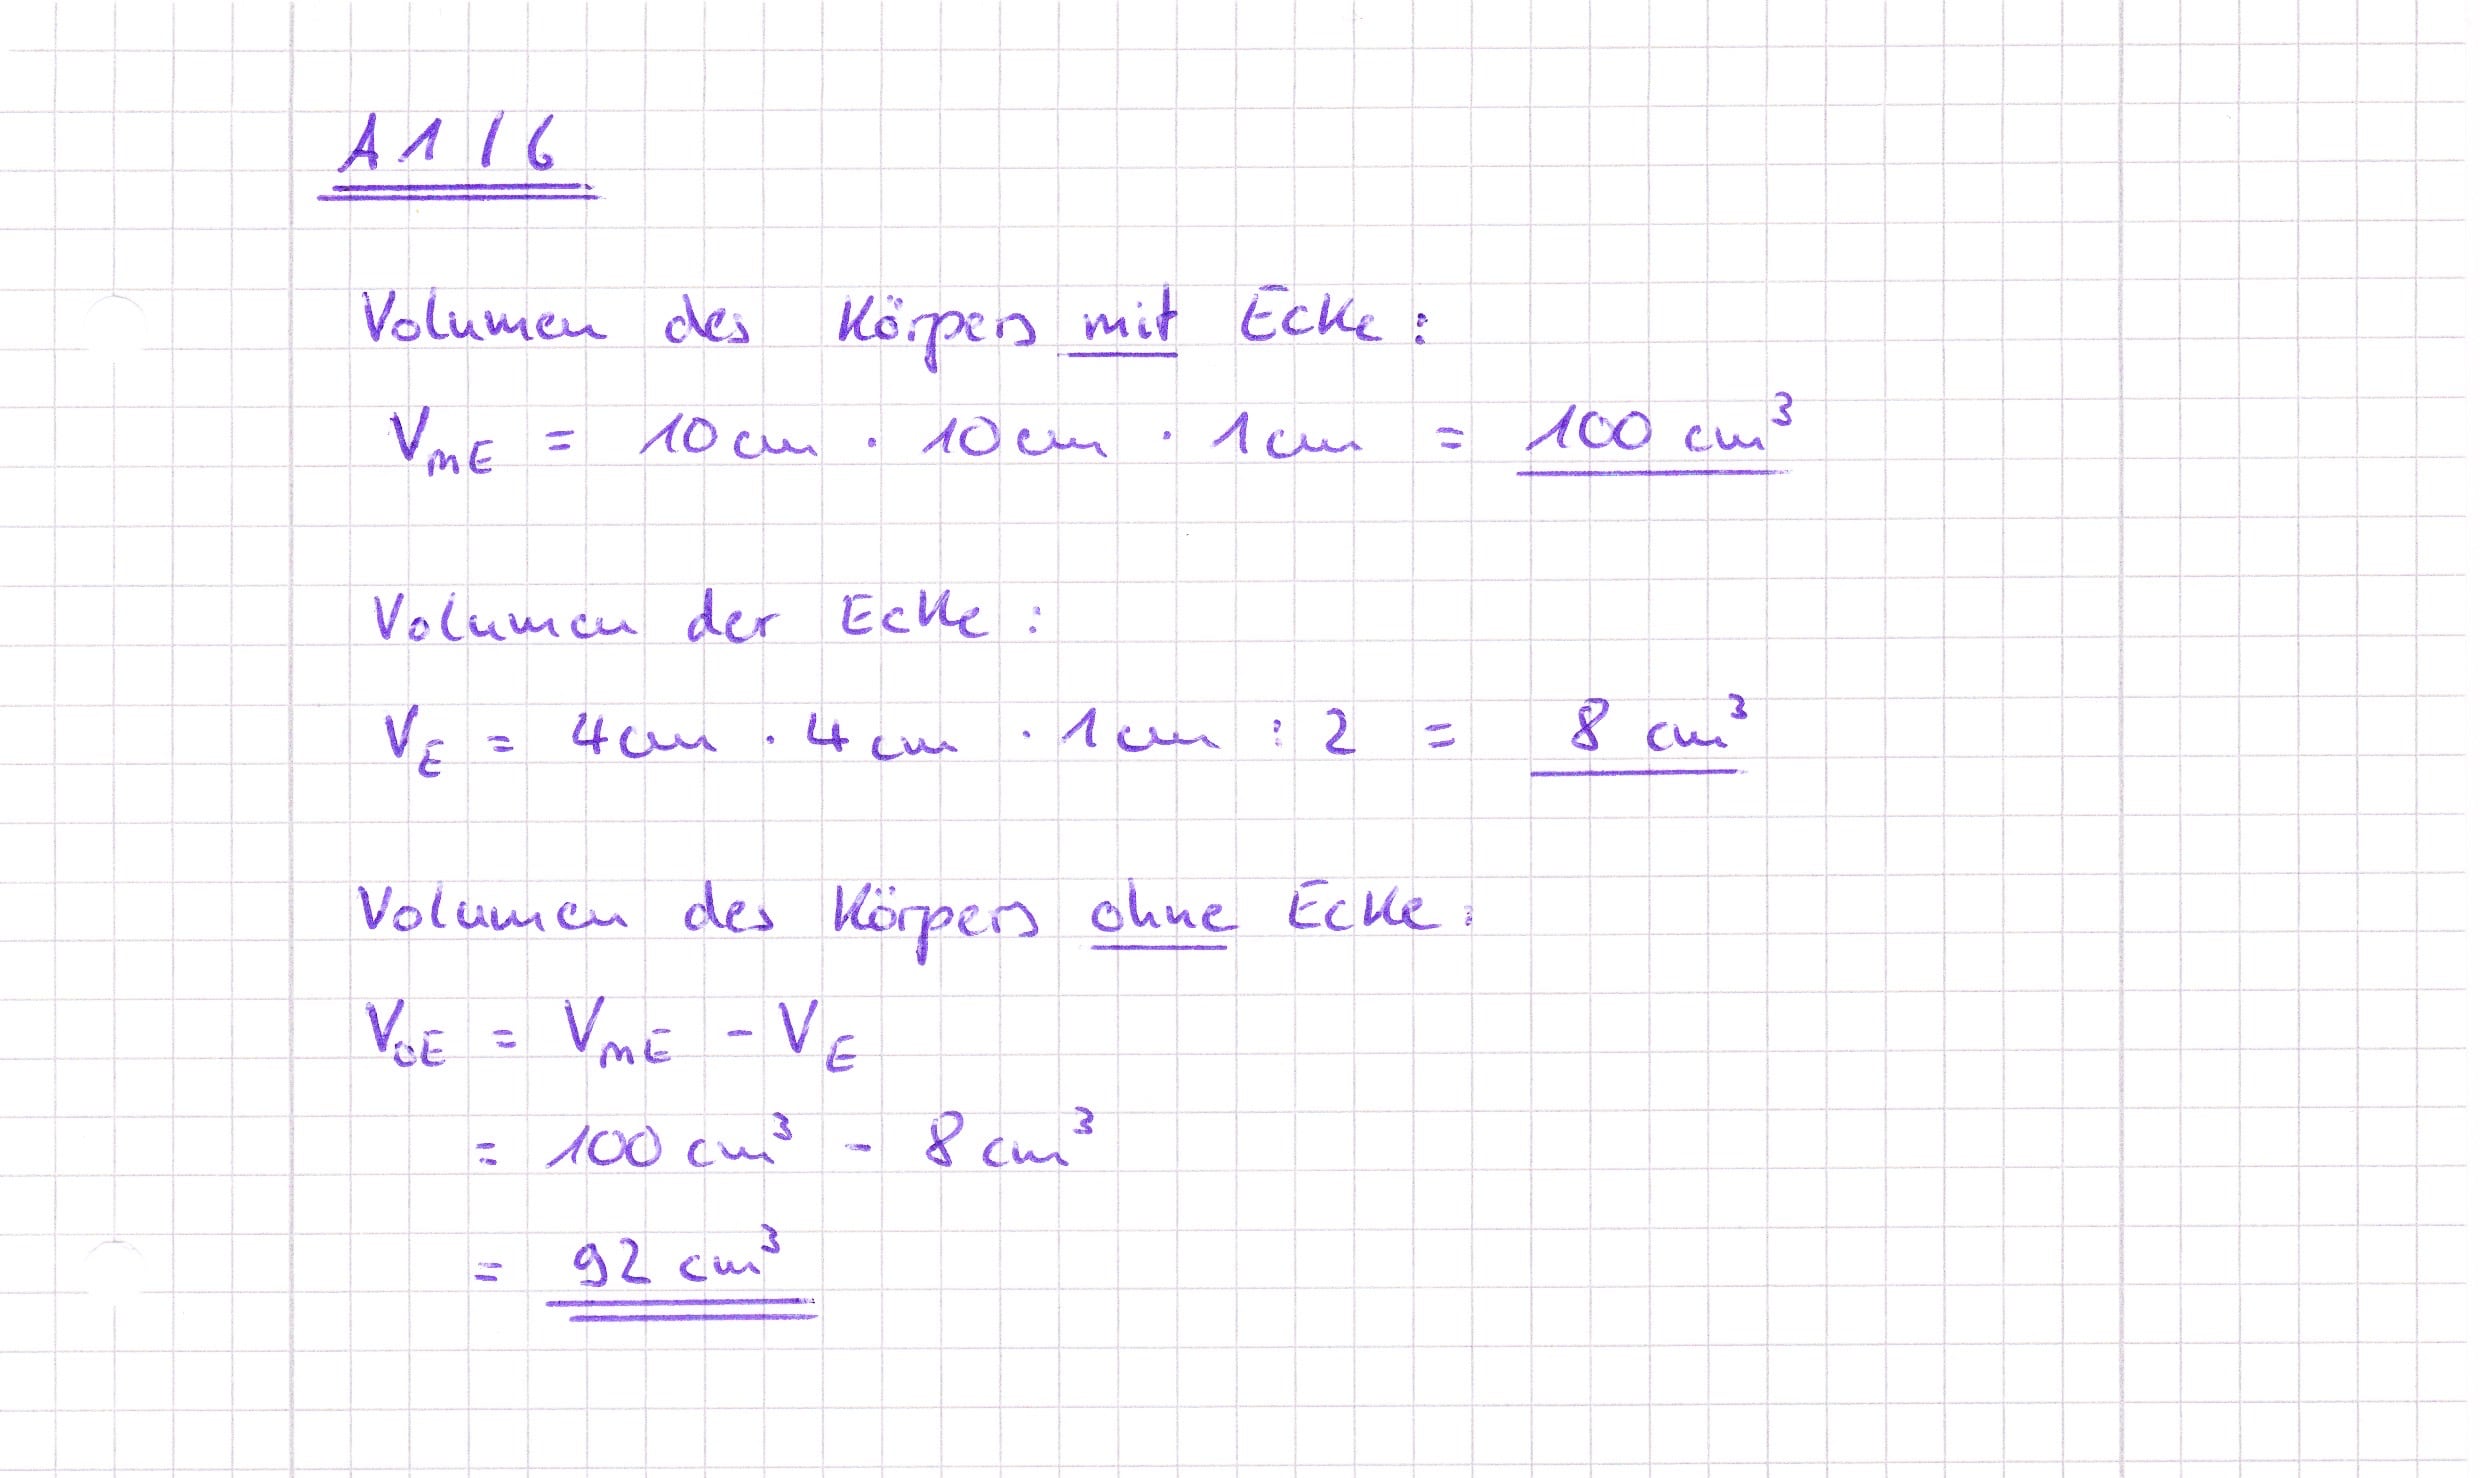 A1/6
Volumen des Körpers mit Ecke:
V_mE = 10cm · 10cm · 1cm = 100 cm³
Volumen der Ecke:
V_E = 4cm · 4cm · 1cm : 2 = 8 cm³
Volumen des Körpers ohne Ecke:
V_oE = V_mE - V_E
= 100 cm³ - 8 cm³
= 92 cm³